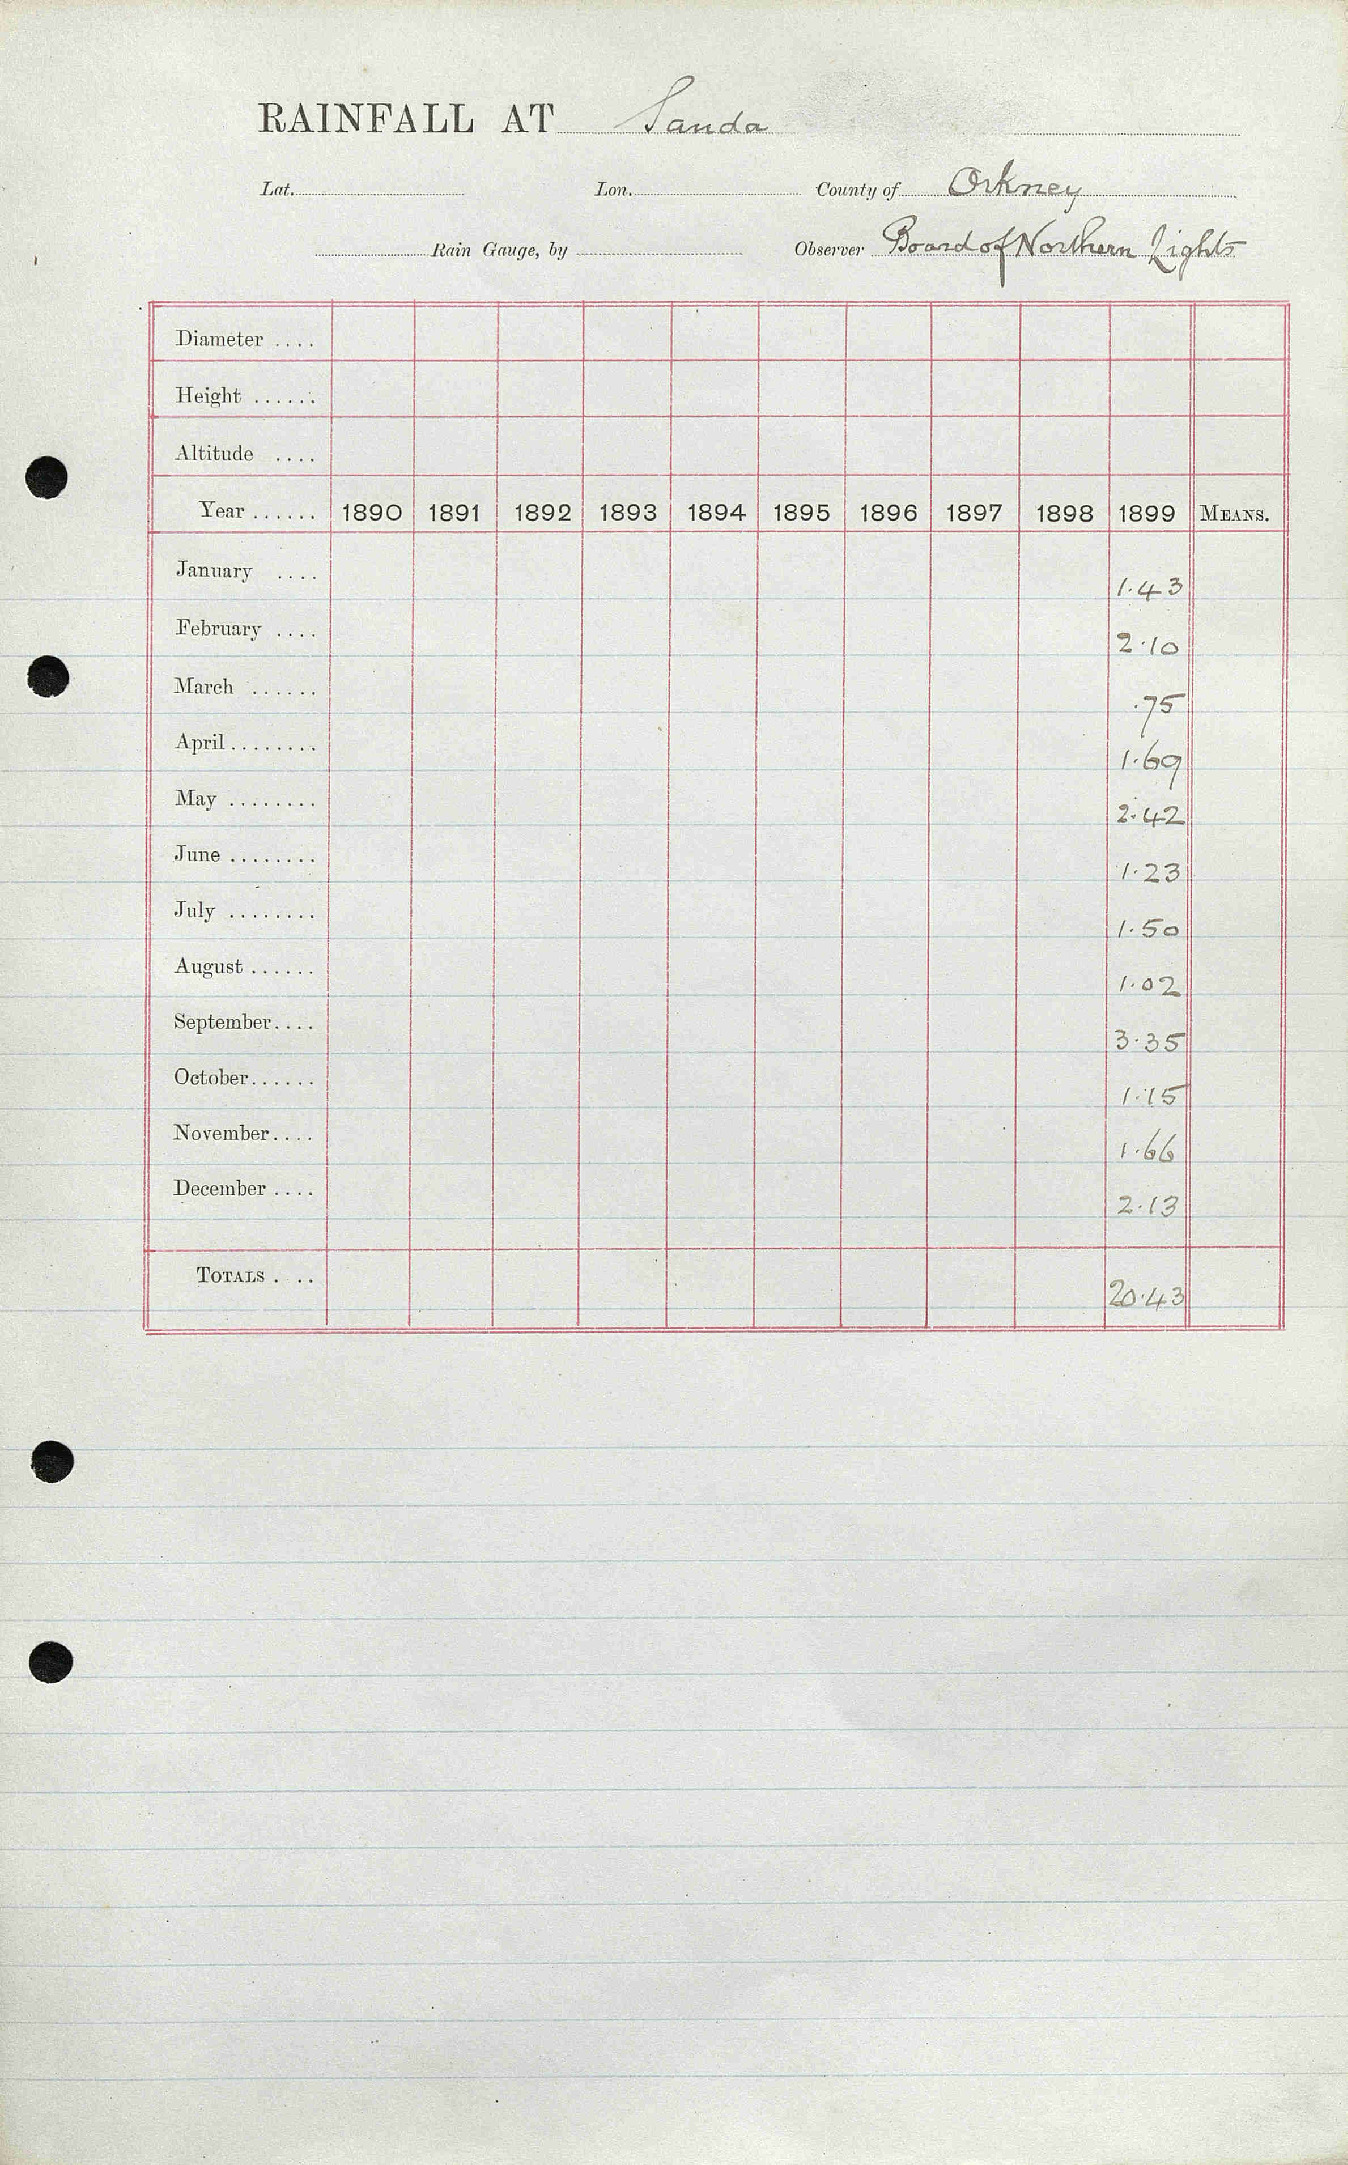 RAINFALL AT Sanda
Lat. Lon. County of Orkney
Rain Gauge, by Observer Board of Northern Lights
Diameter ....
Height ......
Altitude ....
Year ...... 1890 1891 1892 1893 1894 1895 1896 1897 1898 1899 MEANS.
January .... 1.43
February .... 2.10
March ...... .75
April ........ 1.69
May ........ 2.42
June ........ 1.23
July ........ 1.50
August ...... 1.02
September.... 3.35
October...... 1.15
November.... 1.66
December .... 2.13
TOTALS . .. 20.43